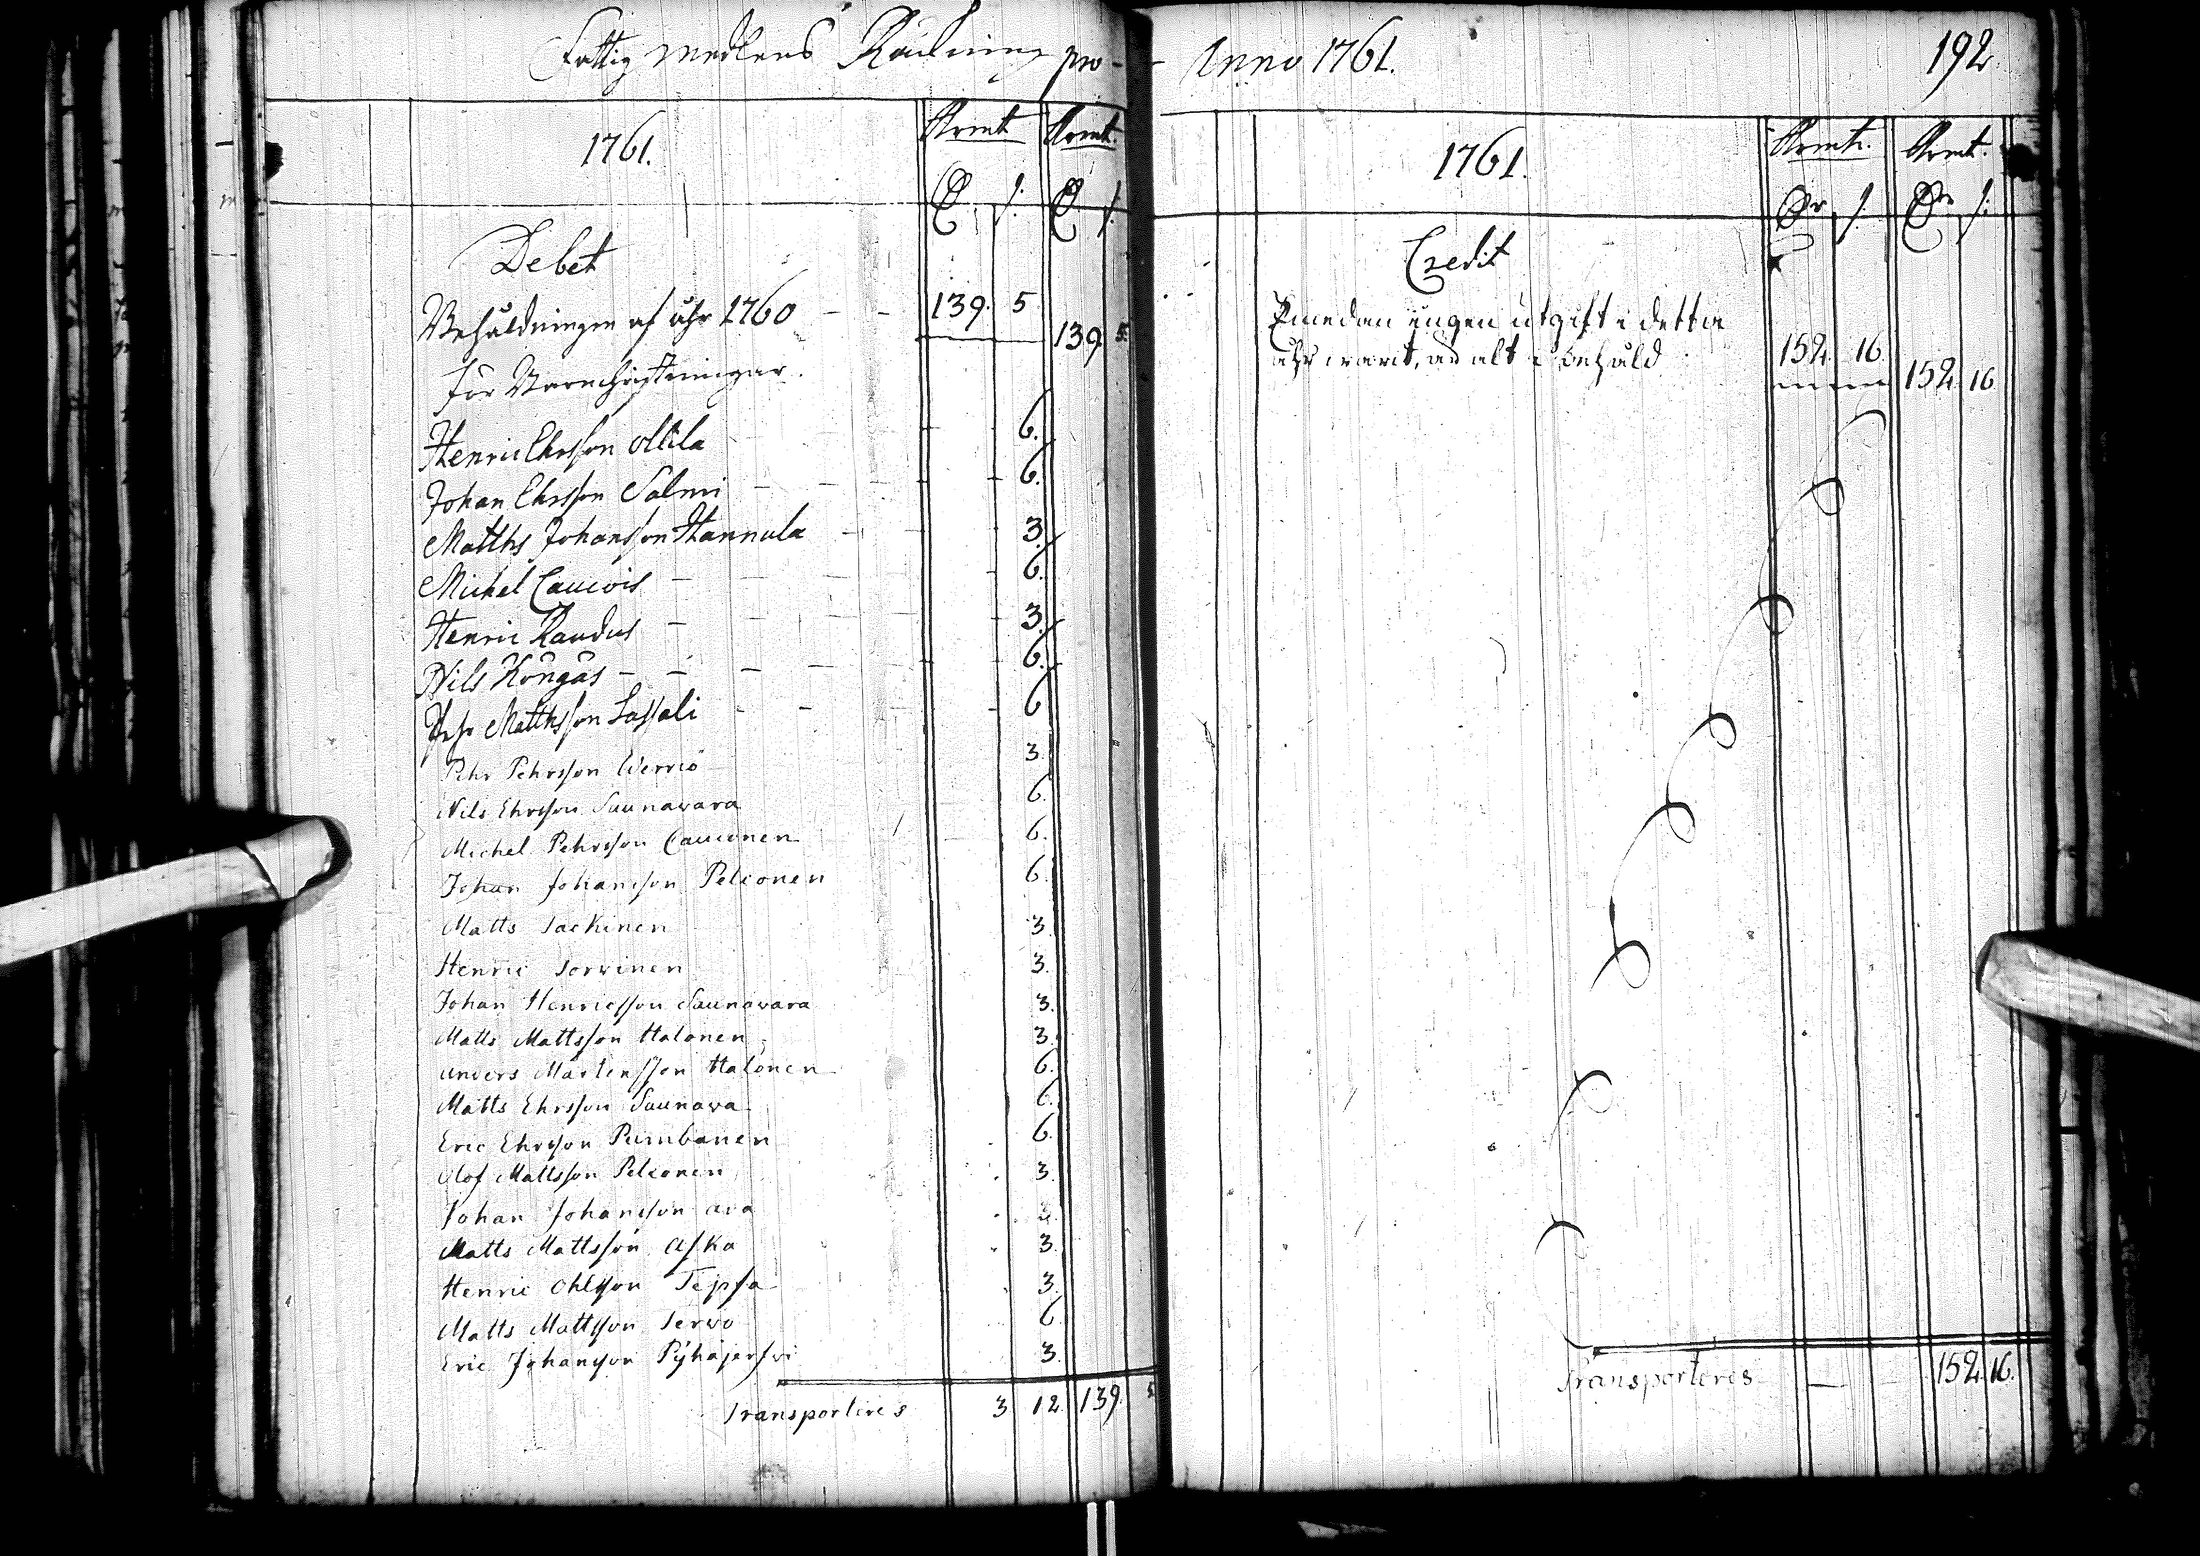 Fattig Medlens Räckning pro - - Anno 1761. 192.
1761. Kmt Kmt.
Debet
Behåldningen af åhr 1760 - - 139. 5 139. 5.
för
Henric Ehrsson Ollila 6.
Johan Ehrsson Salmi - - - 6.
Matths Johansson Hannula - 3.
Michel Caucois - - - 6.
Henric Raudus - - - 3.
Nils Köngäs - - - - 6.
Pehr Matthsson Lassali - - - 6
Pehr Pehrsson Werrio 3.
Nils Ehrsson Saunawara 6.
Michel Pehrsson Cauconen 6.
Johan Johansson Pelconen 6.
Matts Sackinen 3.
Henric Sorvinen 3.
Johan Henricsson Saunawara 3.
Matts Mattsson Halonen 3.
Anders Mårtensson Halonen 6.
Matts Ehrsson Saunawa 6.
Eric Ehrsson Pumbanen 6.
Olof Mattsson Pelconen 3.
Johan Johansson ara 3.
Matts Mattsson Aska 3.
Henric Ohlsson Tepsa 3.
Matts Mattsson Serwo 6
Eric Johansson Pyhäjerfwi 3.
Transporteres 3 12. 139. 5
1761. Kmt. Kmt.
Credit
Emedan ingen utgift i detta
åhr warit, är alt i behåld 152. 16. 152 16
Transporteres — 152. 16.